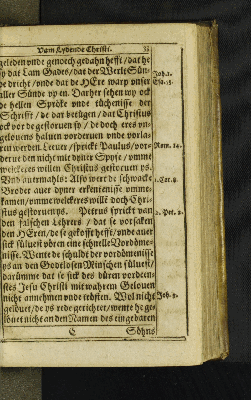 Vam Lydende Christi. 33
geleden vnde genoch gedahn hefft / dat he
sy dat Lam Gades / dat der Werlt Sün- Joh. 1.
de dricht / vnde dat de HEre warp vnser Esa. 53.
aller Sünde vp en. Darher sehen wy ock
de hellen Spröke vnde tüchenisse der
Schrifft / de dar betügen / dat Christus
ock vor de gestoruen sy / de doch eres vn-
gelouens haluen vorderuen vnde vorla-
ren werden. Leeuer / sprickt Paulus / vor- Rom. 14.
derue den nicht mit dyner Spyse / vmme
welckeres willen Christus gestoruen ys.
Vnd auermahls: Also wert de schwacke 1. Cor. 8.
Broder auer dyner erkentenisse vmme-
kamen / vmme welckeres wille doch Chri-
stus gestoruen ys. Petrus sprickt van 2. Pet. 2.
den falschen Lehrers / dat se vorsaken
den HEren / de se gekofft hefft / vnde auer
sick süluest vören eine schnelle Vordöme-
nisse. Wente de schuldt der vordömenisse
ys an den Godtlosen Minschen sülvest /
darümme dat se sick des düren vordeen-
stes Jesu Christi mit wahrem Gelouen
nicht annehmen vnde trösten. Wol nicht Joh. 3.
gelöuet / de ys rede gerichtet / wente he ge-
löuet nicht an den Namen des eingebaren
C Söhns